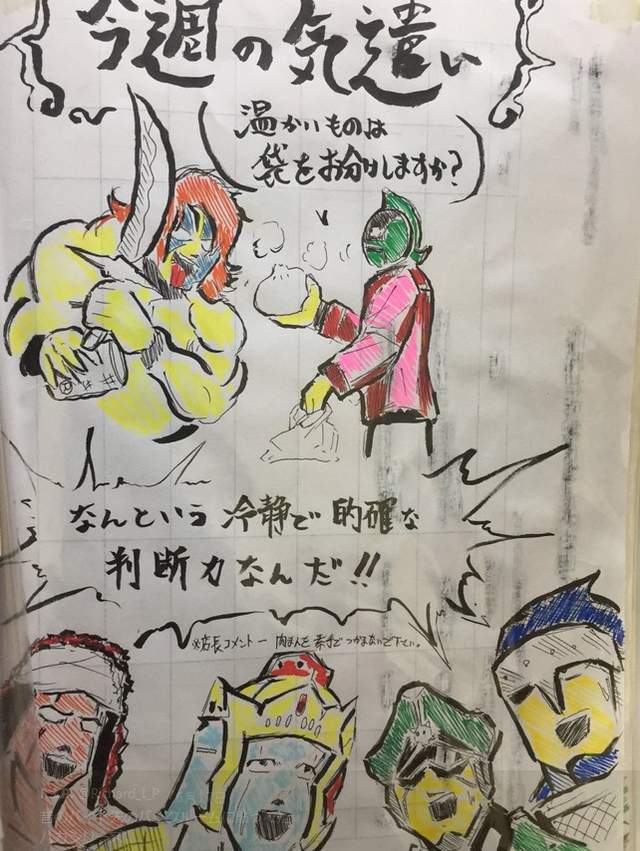 今週の気遣い
温かいものは
袋をお分けしますか?
なんという冷静で的確な
判断力なんだ!!
※店長コメント― 肉まんを素手でつかまないで下さい。
@Richard_I_P